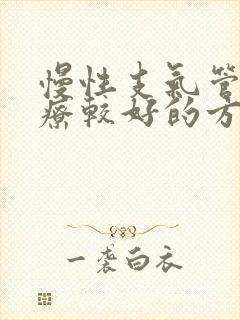 慢性支氣管
療較好的方
一袭白衣